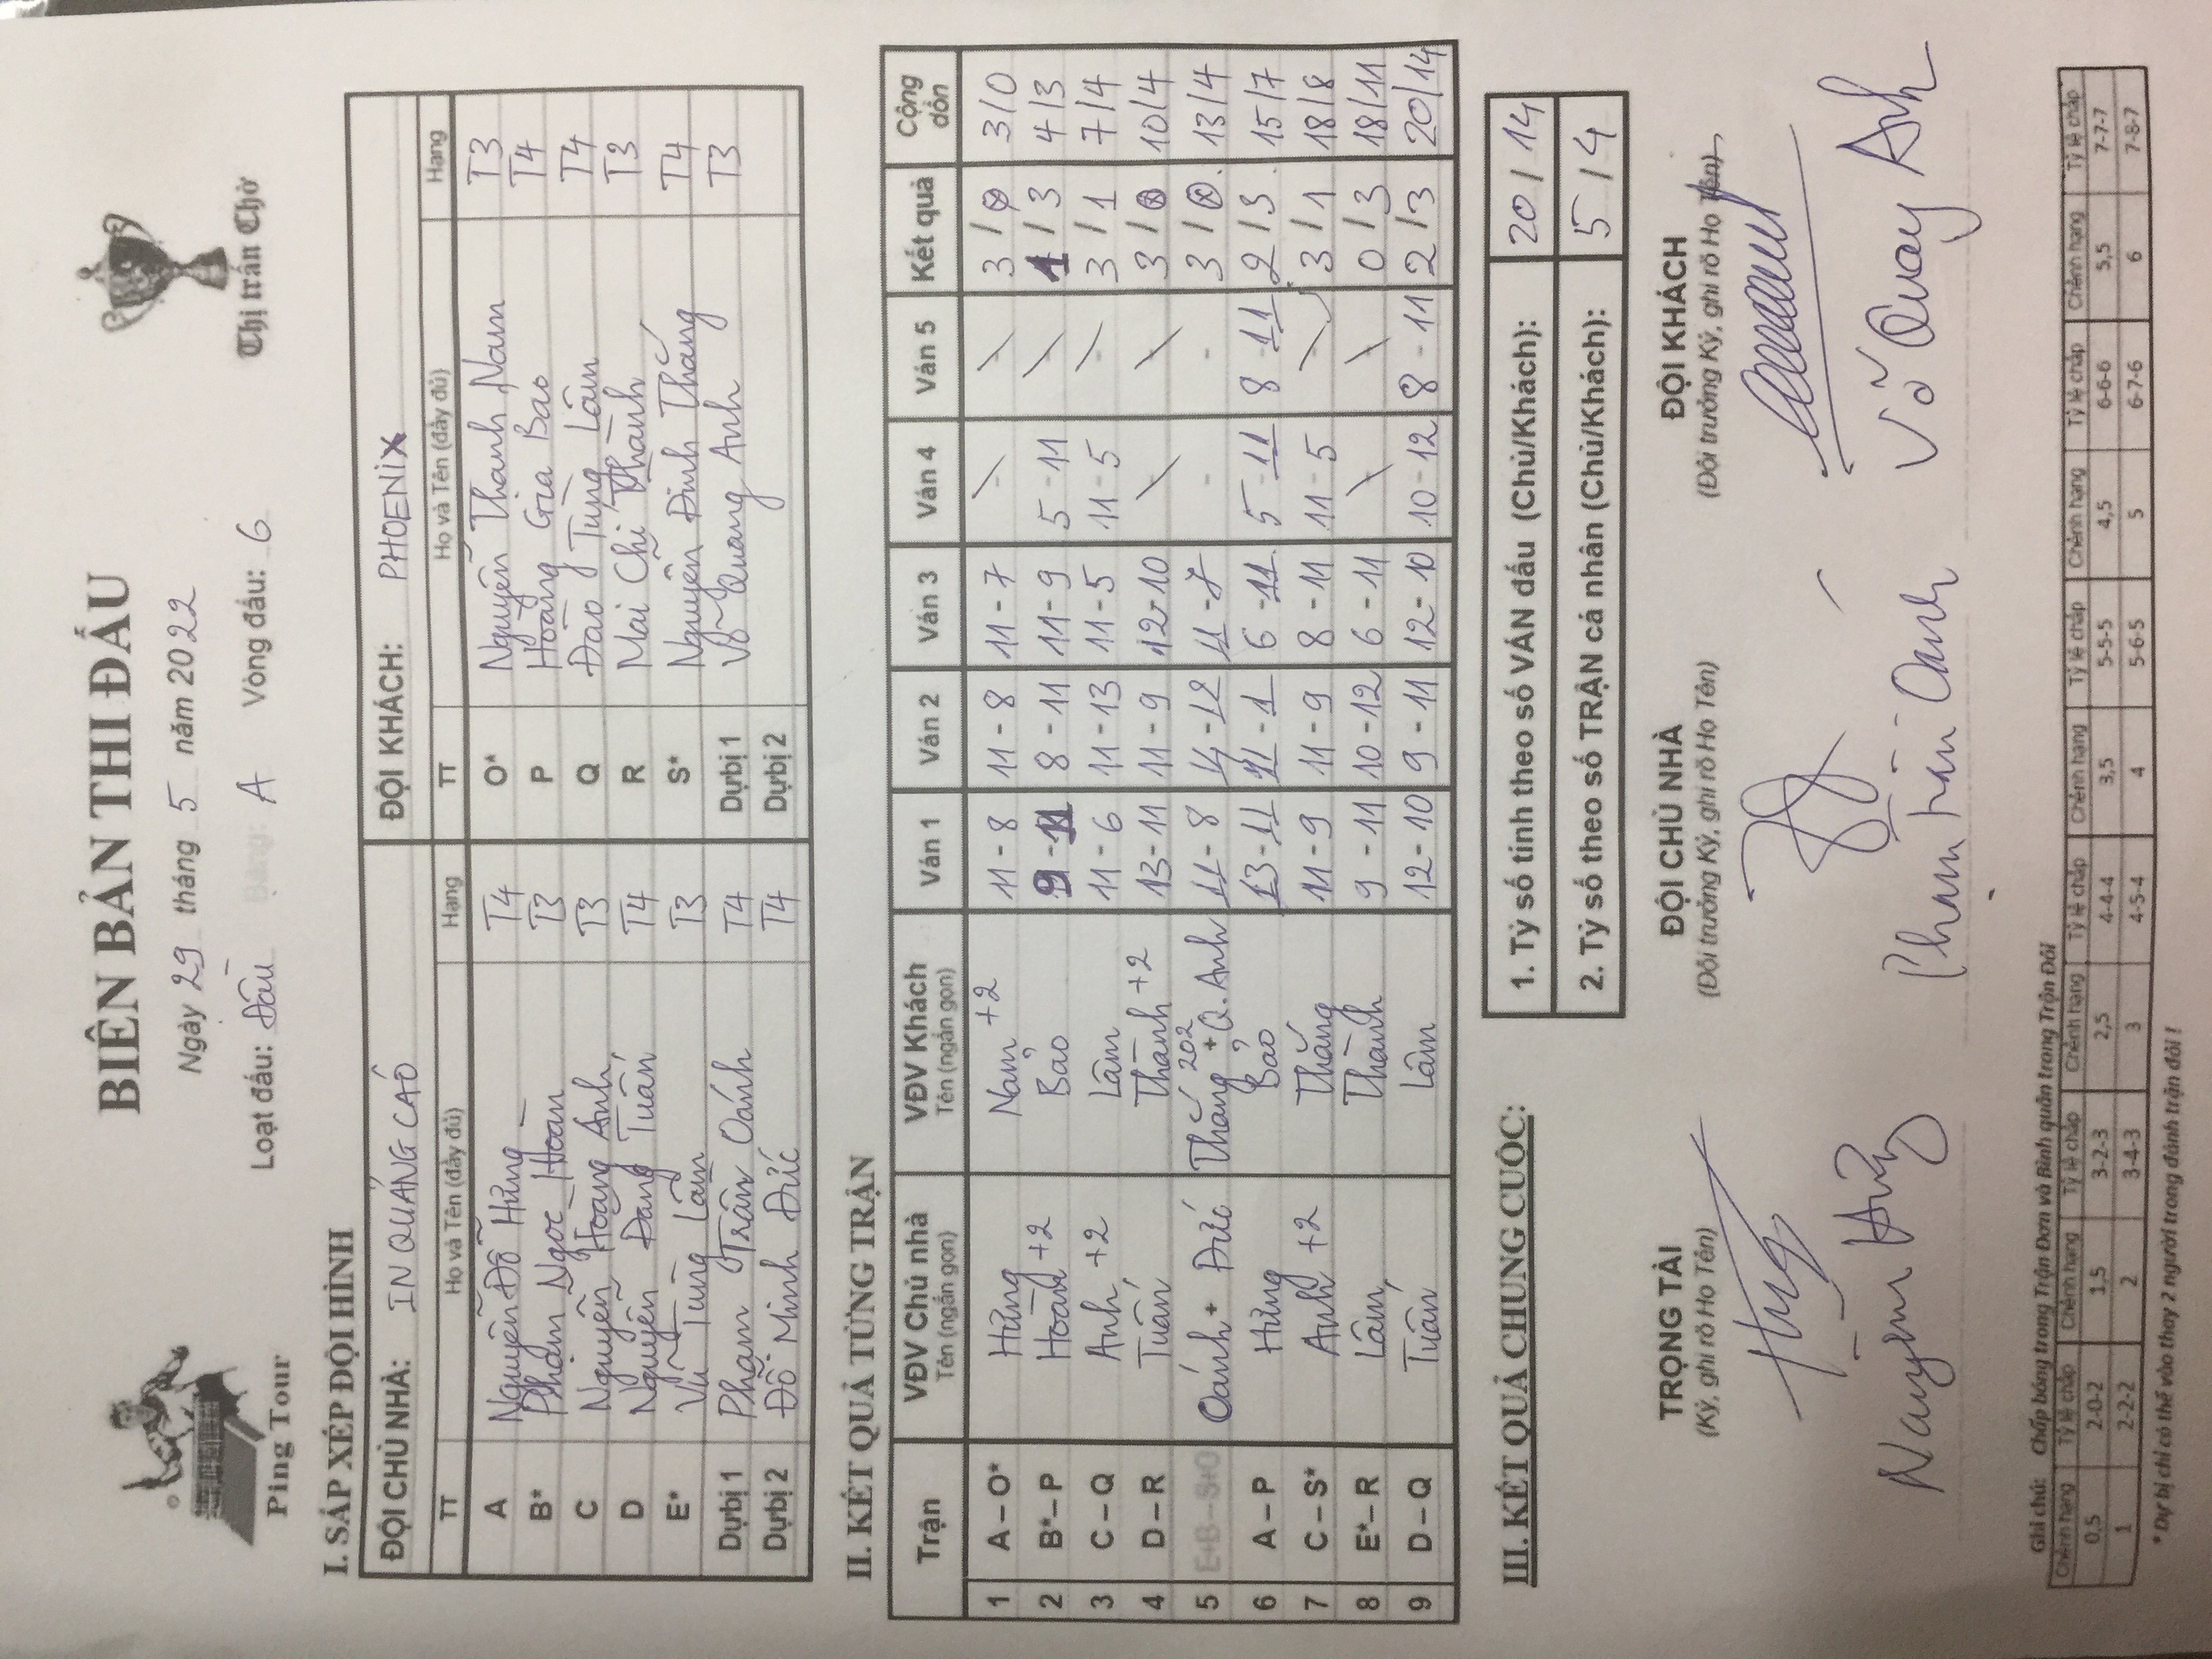 BIÊN BẢN THI ĐẤU
Ping Tour
Thị trấn Chờ
Ngày 29 tháng 5 năm 2022
Loạt đấu: Đấu Bảng: A Vòng đấu: 6
I. SẮP XẾP ĐỘI HÌNH
ĐỘI CHỦ NHÀ: IN QUẢNG CÁO ĐỘI KHÁCH: PHOENIX
TT Họ và Tên (đầy đủ) Hạng TT Họ và Tên (đầy đủ) Hạng
A Nguyễn Đỗ Hưng T4 O* Nguyễn Thanh Nam T3
B* Phạm Ngọc Hoàn T3 P Hoàng Gia Bảo T4
C Nguyễn Hoàng Anh T3 Q Đào Tùng Lâm T4
D Nguyễn Đăng Tuấn T4 R Mai Chí Thành T3
E* Vũ Tùng Lâm T3 S* Nguyễn Đình Thắng T4
Dự bị 1 Phạm Trần Oánh T4 Dự bị 1 Võ Quang Anh T3
Dự bị 2 Đỗ Minh Đức T4 Dự bị 2
II. KẾT QUẢ TỪNG TRẬN
Trận VĐV Chủ nhà Tên (ngắn gọn) VĐV Khách Tên (ngắn gọn) Ván 1 Ván 2 Ván 3 Ván 4 Ván 5 Kết quả Cộng dồn
1 A – O* Hưng Nam +2 11 - 8 11 - 8 11 - 7 - - 3 / 0 3/0
2 B* – P Hoàn +2 Bảo 9 - 11 8 - 11 11 - 9 5 - 11 - 1 / 3 4/3
3 C – Q Anh +2 Lâm 11 - 6 11 - 13 11 - 5 11 - 5 - 3 / 1 7/4
4 D – R Tuấn Thành +2 13 - 11 11 - 9 12 - 10 - - 3 / 0 10/4
5 E+B – S+O Oánh + Đức Thắng + Q. Anh 202 11 - 8 14 - 12 11 - 7 - - 3 / 0 13/4
6 A – P Hưng Bảo 13 - 11 11 - 1 6 - 11 5 - 11 8 - 11 2 / 3 15/7
7 C – S* Anh +2 Thắng 11 - 9 11 - 9 8 - 11 11 - 5 - 3 / 1 18/8
8 E* – R Lâm Thành 9 - 11 10 - 12 6 - 11 - - 0 / 3 18/11
9 D – Q Tuấn Lâm 12 - 10 9 - 11 12 - 10 10 - 12 8 - 11 2 / 3 20/14
III. KẾT QUẢ CHUNG CUỘC:
1. Tỷ số tính theo số VÁN đấu (Chủ/Khách): 20 / 14
2. Tỷ số theo số TRẬN cá nhân (Chủ/Khách): 5 / 4
TRỌNG TÀI ĐỘI CHỦ NHÀ ĐỘI KHÁCH
(Ký, ghi rõ Họ Tên) (Đội trưởng Ký, ghi rõ Họ Tên) (Đội trưởng Ký, ghi rõ Họ Tên)
Hưng
Nguyễn Hưng Phạm Trần Oánh Võ Quang Anh
Ghi chú: Chấp bóng trong Trận Đơn và Bình quân trong Trận Đôi
Chênh hạng Tỷ lệ chấp Chênh hạng Tỷ lệ chấp Chênh hạng Tỷ lệ chấp Chênh hạng Tỷ lệ chấp Chênh hạng Tỷ lệ chấp Chênh hạng Tỷ lệ chấp
0,5 2-0-2 1,5 3-2-3 2,5 4-4-4 3,5 5-5-5 4,5 6-6-6 5,5 7-7-7
1 2-2-2 2 3-4-3 3 4-5-4 4 5-6-5 5 6-7-6 6 7-8-7
* Dự bị chỉ có thể vào thay 2 người trong đánh trận đôi !